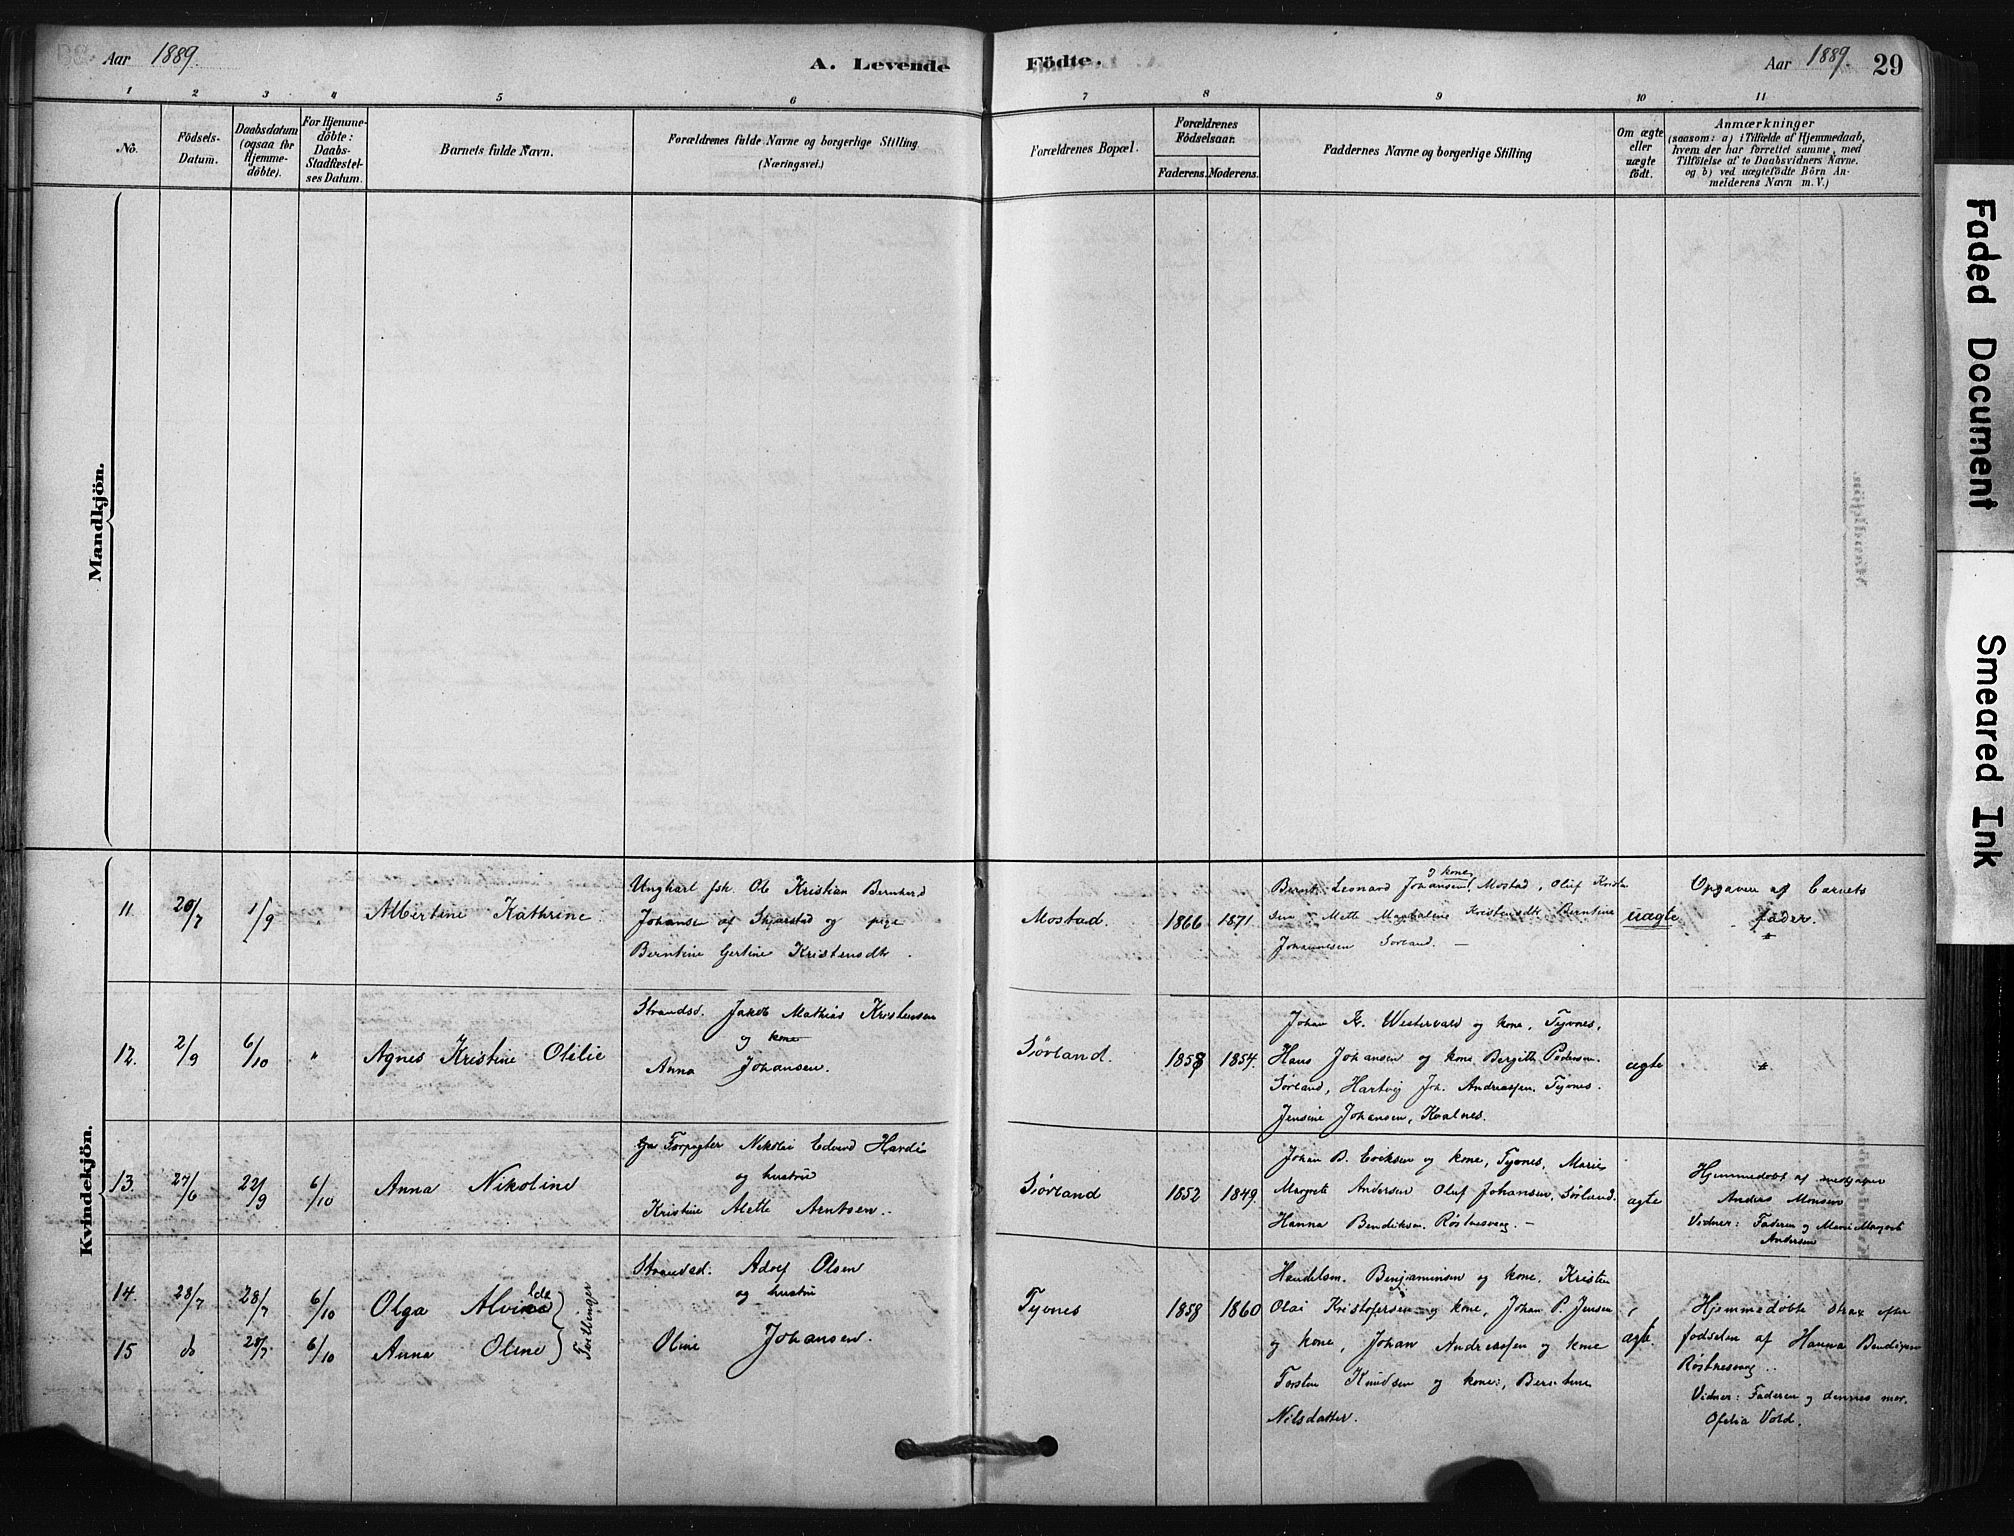 Aar 1889.
A. Levende Födte.
Aar 1889.
29
1 2 3 4 5 6 7 8 9 10 11
No.
Födsels-
Datum.
Daabsdatum
(ogsaa for
Hjemme-
döbte).
For Hjemme-
döbte:
Daabs-
Stadfæstel-
ses Datum.
Barnets fulde Navn.
Forældrenes fulde Navne og borgerlige Stilling
(Næringsvei.)
Forældrenes Bopæl.
Forældrenes
Födselsaar.
Faderens. Moderens.
Faddernes Navne og borgerlige Stilling
Om ægte
eller
uægte
födt.
Anmærkninger
(saasom: a) i Tilfælde af Hjemmedaab,
hvem der har forrettet samme, med
Tilföielse af to Daabsvidners Navne.
og b) ved uægtefödte Börn An-
melderens Navn m. V.)
Mandkjön.
Kvindekjön.
11 20/7 1/9 "
Albertine Kathrine.
Ungkarl fsk. Ole Kristian Bernhard
Johansen af Skjarstad og pige
Berntine Gertine Kristensdtr.
Mostad. 1866 1871
og kone
Bernt Leonard Johansen, Mostad, Oluf
Mette Magdalene Kristensdtr Berntine
Johannesen Sørland. —
uægte
Opgaven af barnets
fader.
12. 2/9 6/10 "
Agnes Kristine Otilie
Strandsd. Jakob Mathias Kristensen
og kone
Anna Johansen.
Sørland. 1858 1854.
Johan K. Westervald og kone, Tyvnes,
Hans Johansen og kone Bergith Pedersen
Sørland, Hartvig Joh. Andreassen Tyvnes.
Jensine Johansen, Kvalnes.
ægte
"
13. 27/6 22/9 6/10
Anna Nikoline
Forpagter Nikolai Edvard Hardi
og hustru
Kristine Alette Arntsen.
Sørland 1852 1849.
Johan B. Eriksen og kone, Tyvnes, Marie
Margrete Andersen Oluf Johansen, Sørland.
Hanna Bendiksen Røstnesvaag. —
ægte
Hjemmedøbt af
Anders Monsen
Vidner: Faderen og Marie Margrete
Andersen
14 28/7 28/7 6/10
Olga Alvilde
15 do 28/7 6/10
Anna Oline
Tvillinger
Strandsd. Adolf Olsen
og hustru
Oline Johansen.
Tyvnes 1858 1860
Handelsm. Benjaminsen og kone, Kristen
Olai Kristofersen og kone, Johan P. Jensen
og kone, Johan Andreassen og kone
Torsten Knudsen og kone, Berntine
Nilsdatter.
ægte.
Hjemmedøbte strax efter
fødselen af Hanna Bendixen
Røstnesvaag.
Vidner: Faderen og dennes mor.
Ofelia Vold.
Faded Document
Smeared Ink